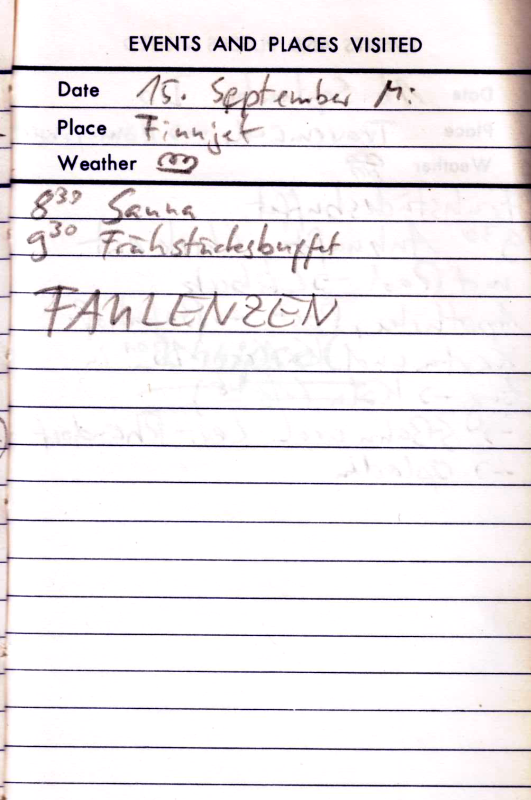 EVENTS AND PLACES VISITED
Date 15. September Mi
Place Finnjet
Weather
8³⁹ Sauna
9³⁰ Frühstücksbuffet
FAULENZEN